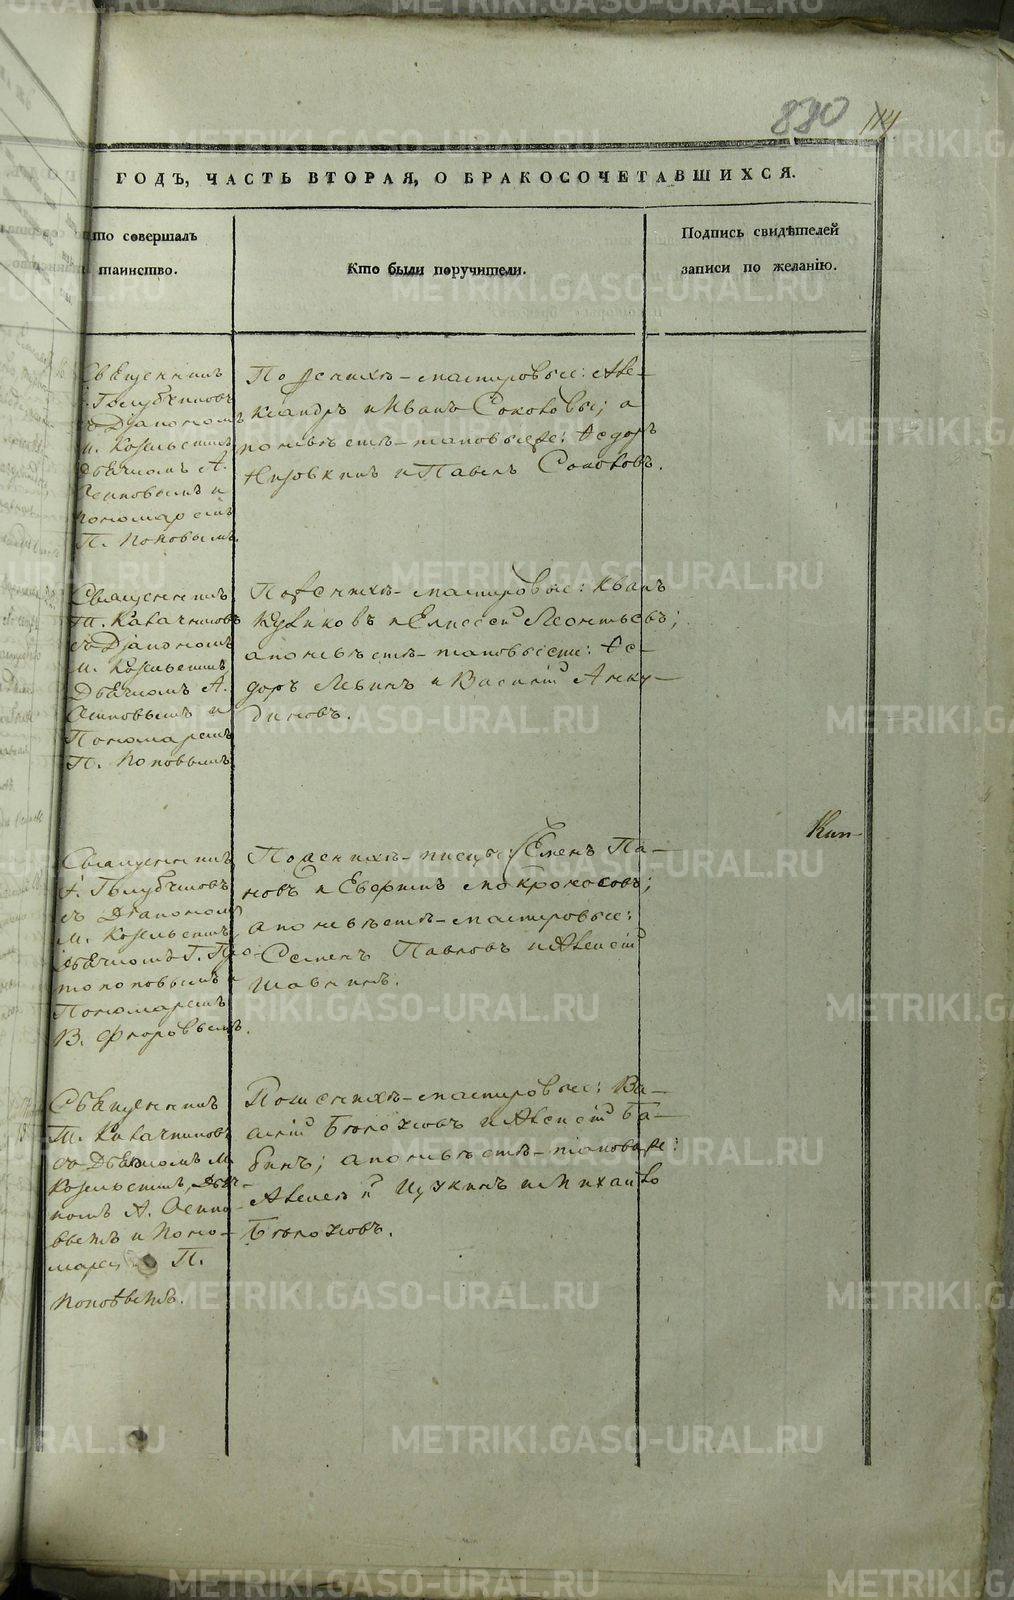 880 114
ГОДЪ, ЧАСТЬ ВТОРАЯ, О БРАКОСОЧЕТАВШИХСЯ.
то совершалъ
таинство.
Кто были поручители.
Подпись свидѣтелей
записи по желанію.
Священникъ
Голубчиковъ
съ Діакономъ
М. Козельскимъ
Дьячкомъ А.
Осиповымъ и
пономаремъ
П. Поповымъ.
По женихѣ - мастеровые: Але-
ксандръ и Иванъ Соколовы; а
по невѣстѣ - таковые же: Ѳедоръ
и Павелъ Соколовъ.
Священникъ
Т. Калачниковъ
съ Діакономъ
М. Козельскимъ
Дьячкомъ А.
Осиповымъ и
Пономаремъ
П. Поповымъ
По женихѣ - мастеровые: Иванъ
Куликовъ и Елисей Леонтьевъ;
а по невѣстѣ - таковые же: Ѳе-
доръ Левинъ и Василій Анку-
диновъ.
Кип-
Священникъ
Голубчиковъ
съ Діакономъ
М. Козельскимъ
Дьячкомъ Г. Про-
топоповымъ и
Пономаремъ
В. Флоровымъ.
По женихѣ - писцы: Семенъ Па-
новъ и Мокроносовъ;
а по невѣстѣ - мастеровые:
Семенъ Павловъ и Алексѣй
Шавнинъ.
Священникъ
Т. Калачниковъ
съ Діакономъ М.
Козельскимъ, Дьяч-
комъ А. Осипо-
вымъ и Поно-
маремъ П.
Поповымъ.
По женихѣ - мастеровые: Ва-
силій Бѣлоховъ и Алексѣй Ба-
бинъ; а по невѣстѣ - таковые же:
Алексѣй и Михайло
Бѣлоховъ.
METRIKI.GASO-URAL.RU